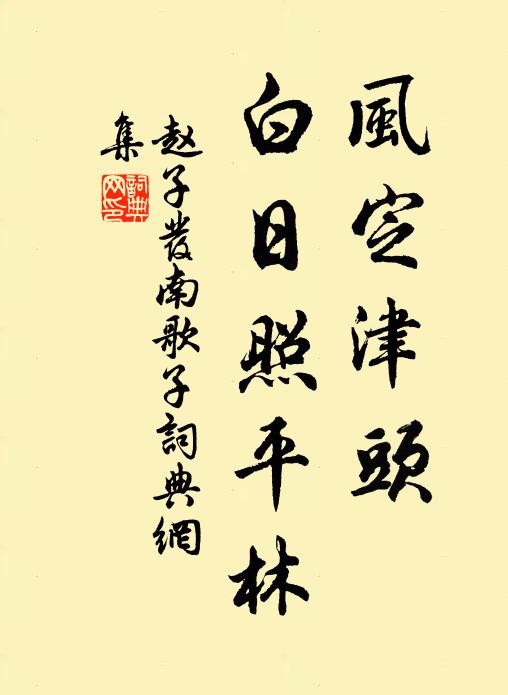 風定津頭
白日照平林
赵子發南歌子詞典網
集
詞典
网印